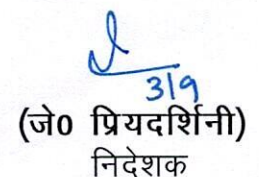 3/9
(जे0 प्रियदर्शिनी)
निदेशक